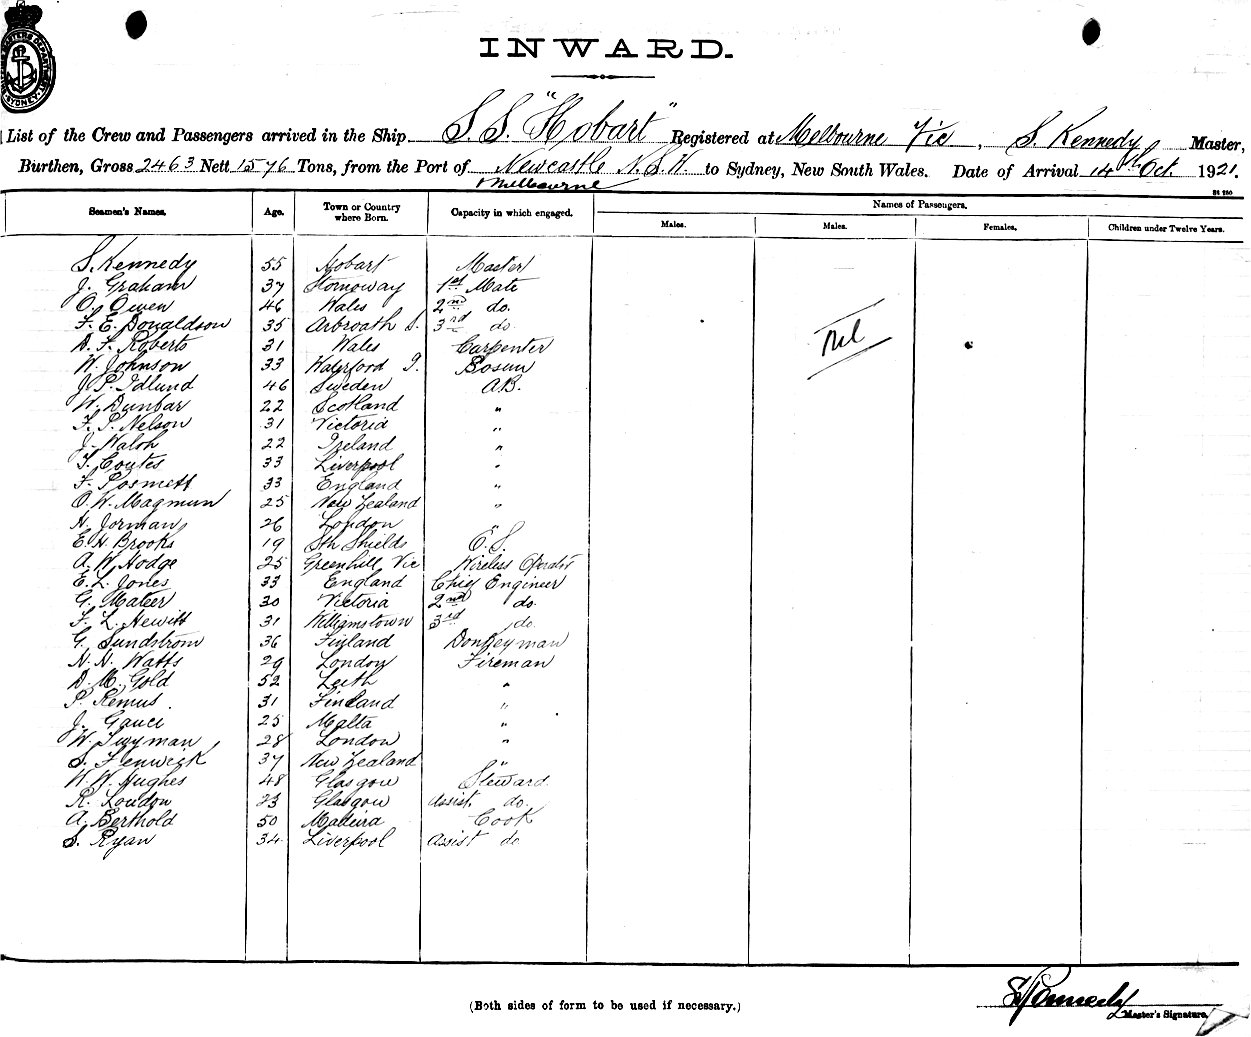 INWARD.
List of the Crew and Passengers arrived in the Ship S.S. "Hobart" Registered at Melbourne Vic, S. Kennedy Master,
Burthen, Gross 2463 Nett 1576 Tons, from the Port of Newcastle N.S.W to Sydney, New South Wales. Date of Arrival 14th Oct. 1921.
Melbourne
St 780
Seamen's Names. Age. Town or Country where Born. Capacity in which engaged. Names of Passengers.
Males. Males. Females. Children under Twelve Years.
S. Kennedy 55 Hobart Master
J. Graham 37 Stornoway 1st Mate
O. Owen 46 Wales 2nd do.
F. E. Donaldson 35 Arbroath S. 3rd do
D. F. Roberts 31 Wales Carpenter
Nil
W. Johnson 33 Waterford I. Bosun
J. P. Idlund 46 Sweden A.B.
W. Dunbar 22 Scotland "
F. P. Nelson 31 Victoria "
J. Walsh 22 Ireland "
T. Coutes 33 Liverpool "
F. Posmett 33 England "
O. W. Magmun 25 New Zealand "
H. Jorman 26 London "
E. H. Brooks 19 Sth Shields O.S.
A. W. Hodge 25 Greenhill Vic Wireless Operator
E. L. Jones 33 England Chief Engineer
G. Mateer 30 Victoria 2nd do.
F. L. Hewitt 31 Williamstown 3rd do.
G. Sundstrom 36 Finland Donkeyman
N. N. Watts 29 London Fireman
D. M. Gold 52 Leith "
P. Remus. 31 Finland "
J. Gauci 25 Malta "
W. Twyman 28 London "
S. Fenwick 37 New Zealand "
W. W. Hughes 48 Glasgow Steward.
R. Loudon 23 Glasgow Assist. do.
A. Berthold 50 Madeira Cook
S. Ryan 34 Liverpool Assist do
(Both sides of form to be used if necessary.)
S Kennedy
Master's Signature.